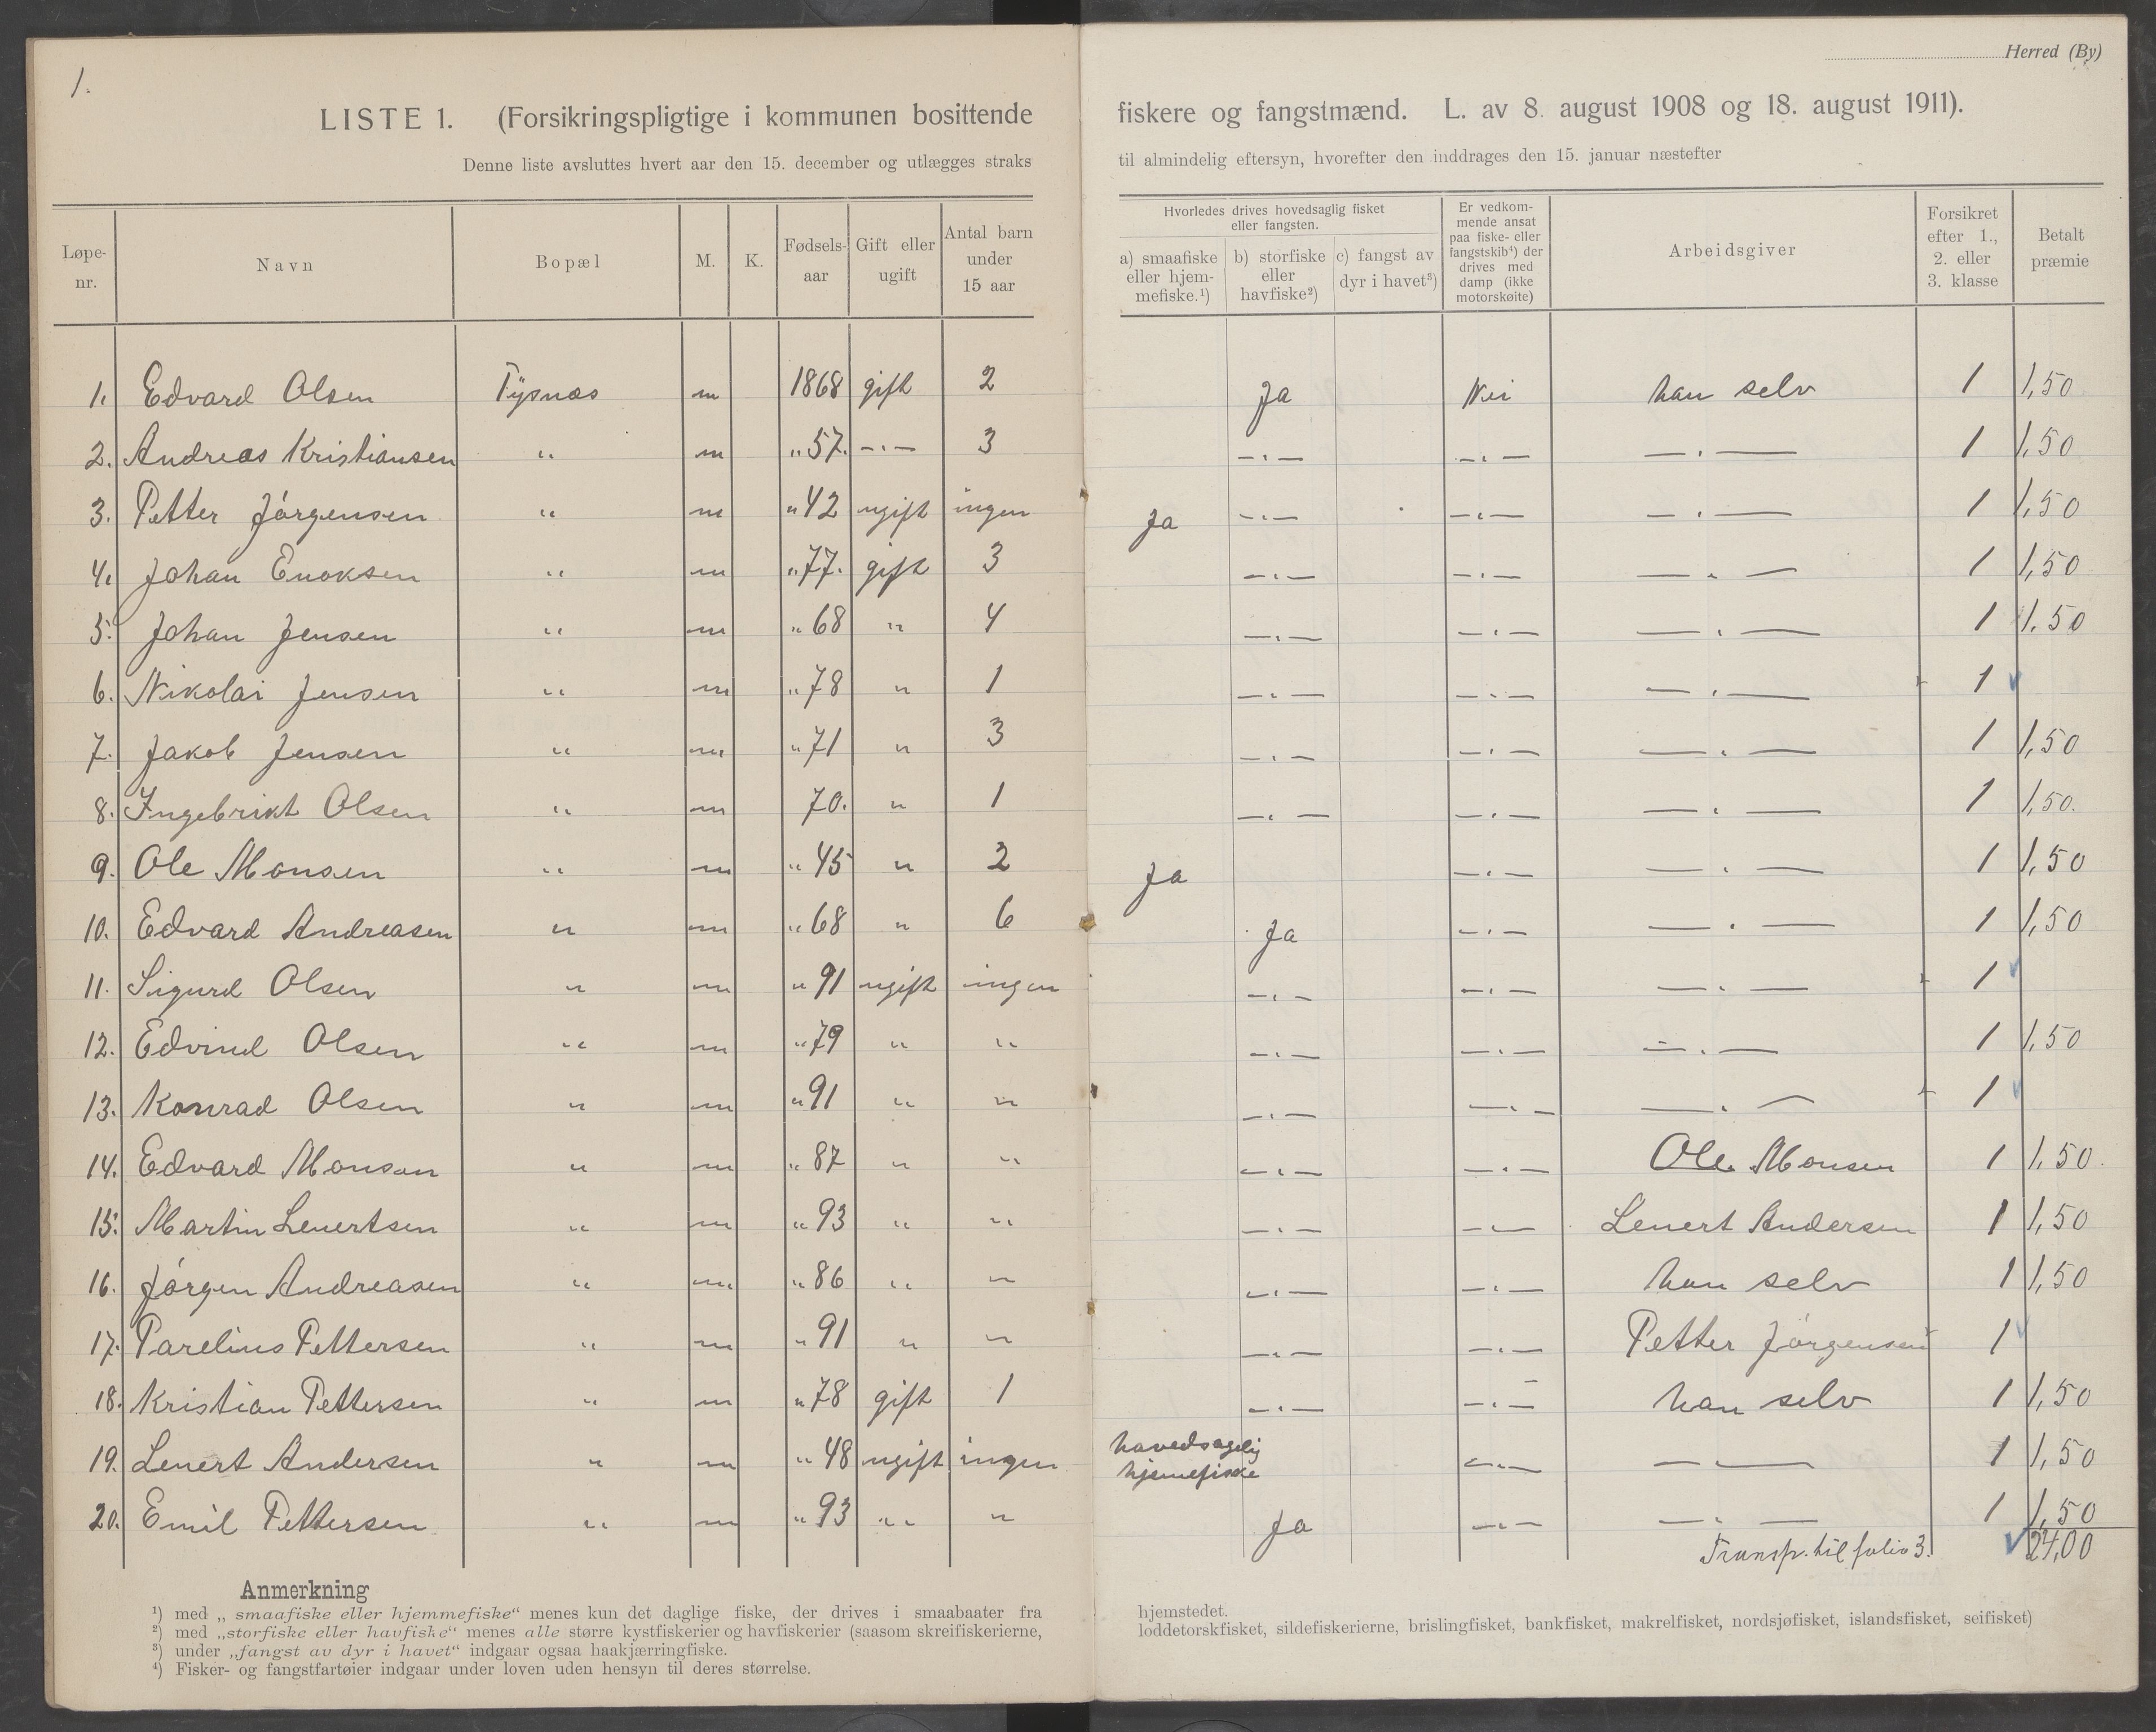 1.
Herred (By)
LISTE 1. (Forsikringspligtige i kommunen bosittende fiskere og fangstmænd. L. av 8. august 1908 og 18. august 1911).
Denne liste avsluttes hvert aar den 15. december og utlægges straks til almindelig eftersyn, hvorefter den inddrages den 15. januar næstefter
Løpe-nr. Navn Bopæl M. K. Fødsels-aar Gift eller ugift Antal barn under 15 aar Hvorledes drives hovedsaglig fisket eller fangsten. a) smaafiske eller hjem-mefiske.¹) b) storfiske eller havfiske²) c) fangst av dyr i havet³) Er vedkom-mende ansat paa fiske- eller fangstskib⁴) der drives med damp (ikke motorskøite) Arbeidsgiver Forsikret efter 1., 2. eller 3. klasse Betalt præmie
1. Edvard Olsen Tysnæs m 1868 gift 2 Ja Nei han selv 1 1,50
2. Andreas Kristiansen " m " 57. -"- 3 -"- -"- -"- 1 1,50
3. Petter Jørgensen " m " 42 ugift ingen Ja -"- -"- -"- 1 1,50
4. Johan Enoksen " m " 77. gift 3 -"- -"- -"- 1 1,50
5. Johan Jensen " m " 68 " 4 -"- -"- -"- 1 1.50
6. Nikolai Jensen " m " 78 " 1 -"- -"- -"- 1
7. Jakob Jensen " m " 71 " 3 -"- -"- -"- 1 1,50
8. Ingebrikt Olsen " m 70. " 1 -"- -"- -"- 1 1,50.
9. Ole Monsen " m " 45 " 2 Ja -"- -"- 1 1,50
10. Edvard Andreasen " m " 68 " 6 Ja -"- -"- 1 1,50
11. Sigurd Olsen " m " 91 ugift ingen -"- -"- -"- 1
12. Edvind Olsen " m " 79 " " -"- -"- -"- 1 1,50
13. Konrad Olsen " m " 91 " " -"- -"- -"- 1
14. Edvard Monsen " m " 87 " " -"- -"- Ole Monsen 1 1,50.
15. Martin Lenertsen " m " 93 " " -"- -"- Lenert Andersen 1 1,50
16. Jørgen Andreasen " m " 86 " " -"- -"- han selv 1 1,50
17. Parelius Pettersen " m " 91 " " -"- -"- Petter Jørgensen 1
18. Kristian Pettersen " m " 78 gift 1 -"- -"- han selv 1 1,50
19. Lenert Andersen " m " 48 ugift ingen havedsagelig hjemefiske -"- -"- 1 1,50
20. Emil Pettersen " m " 93 " " Ja -"- -"- 1 1,50
Transp. til folio 3. 24,00
Anmerkning
¹) med „smaafiske eller hjemmefiske“ menes kun det daglige fiske, der drives i smaabaater fra hjemstedet.
²) med „storfiske eller havfiske“ menes alle større kystfiskerier og havfiskerier (saasom skreifiskerierne, loddetorskfisket, sildefiskerierne, brislingfisket, bankfisket, makrelfisket, nordsjøfisket, islandsfisket, seifisket)
³) under „fangst av dyr i havet“ indgaar ogsaa haakjærringfiske.
⁴) Fisker- og fangstfartøier indgaar under loven uden hensyn til deres størrelse.